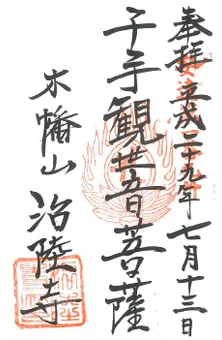 奉拝
平成二十九年七月十三日
千手観世音菩薩
木幡山
治陸寺